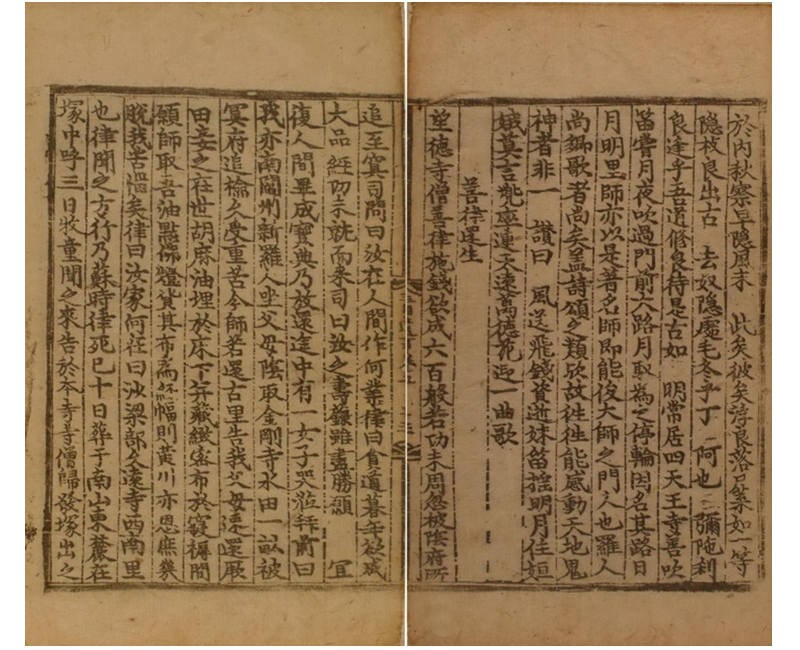 於內秋察早隱風未　此矣彼矣浮良落尸葉如一等
隱枝良出古　去奴隱處毛冬乎丁　阿也　彌陁刹
良逢乎吾道修良待是古如　明常居四天王寺善吹
笛嘗月夜吹過門前大路月馭為之停輪因名其路曰
月明里師亦以是著名師即能俊大師之門人也羅人
尚鄕歌者尚矣盖詩頌之類歟故徃徃能感動天地鬼
神者非一　讃曰　風送飛錢資逝妹笛揺明月住姮
娥莫言兜率連天遠萬德花迎一曲歌
善律還生
望德寺僧善律施錢欲成六百般若功未周忽被陰府所
追至冥司問曰汝在人間作何業律曰貧道暮年欲成
大品經功未就而来司曰汝之壽籙雖盡勝願　宜
復人間畢成寶典乃放還途中有一女子哭泣拜前曰
我亦南閻州新羅人坐父母陰取金剛寺水田一畝被
冥府追檢久受重苦今師若還古里告我父母速還厥
田妾之在世胡麻油埋於床下并藏緻密布於寢褥間
願師取吾油點佛燈貨其布為經幅則黃川亦恩庶幾
脫我苦惱矣律曰汝家何在曰沙梁部久遠寺西南里
也律聞之方行乃蘇時律死已十日葬于南山東麓在
塚中呼三日牧童聞之來告於本寺寺僧歸發塚出之